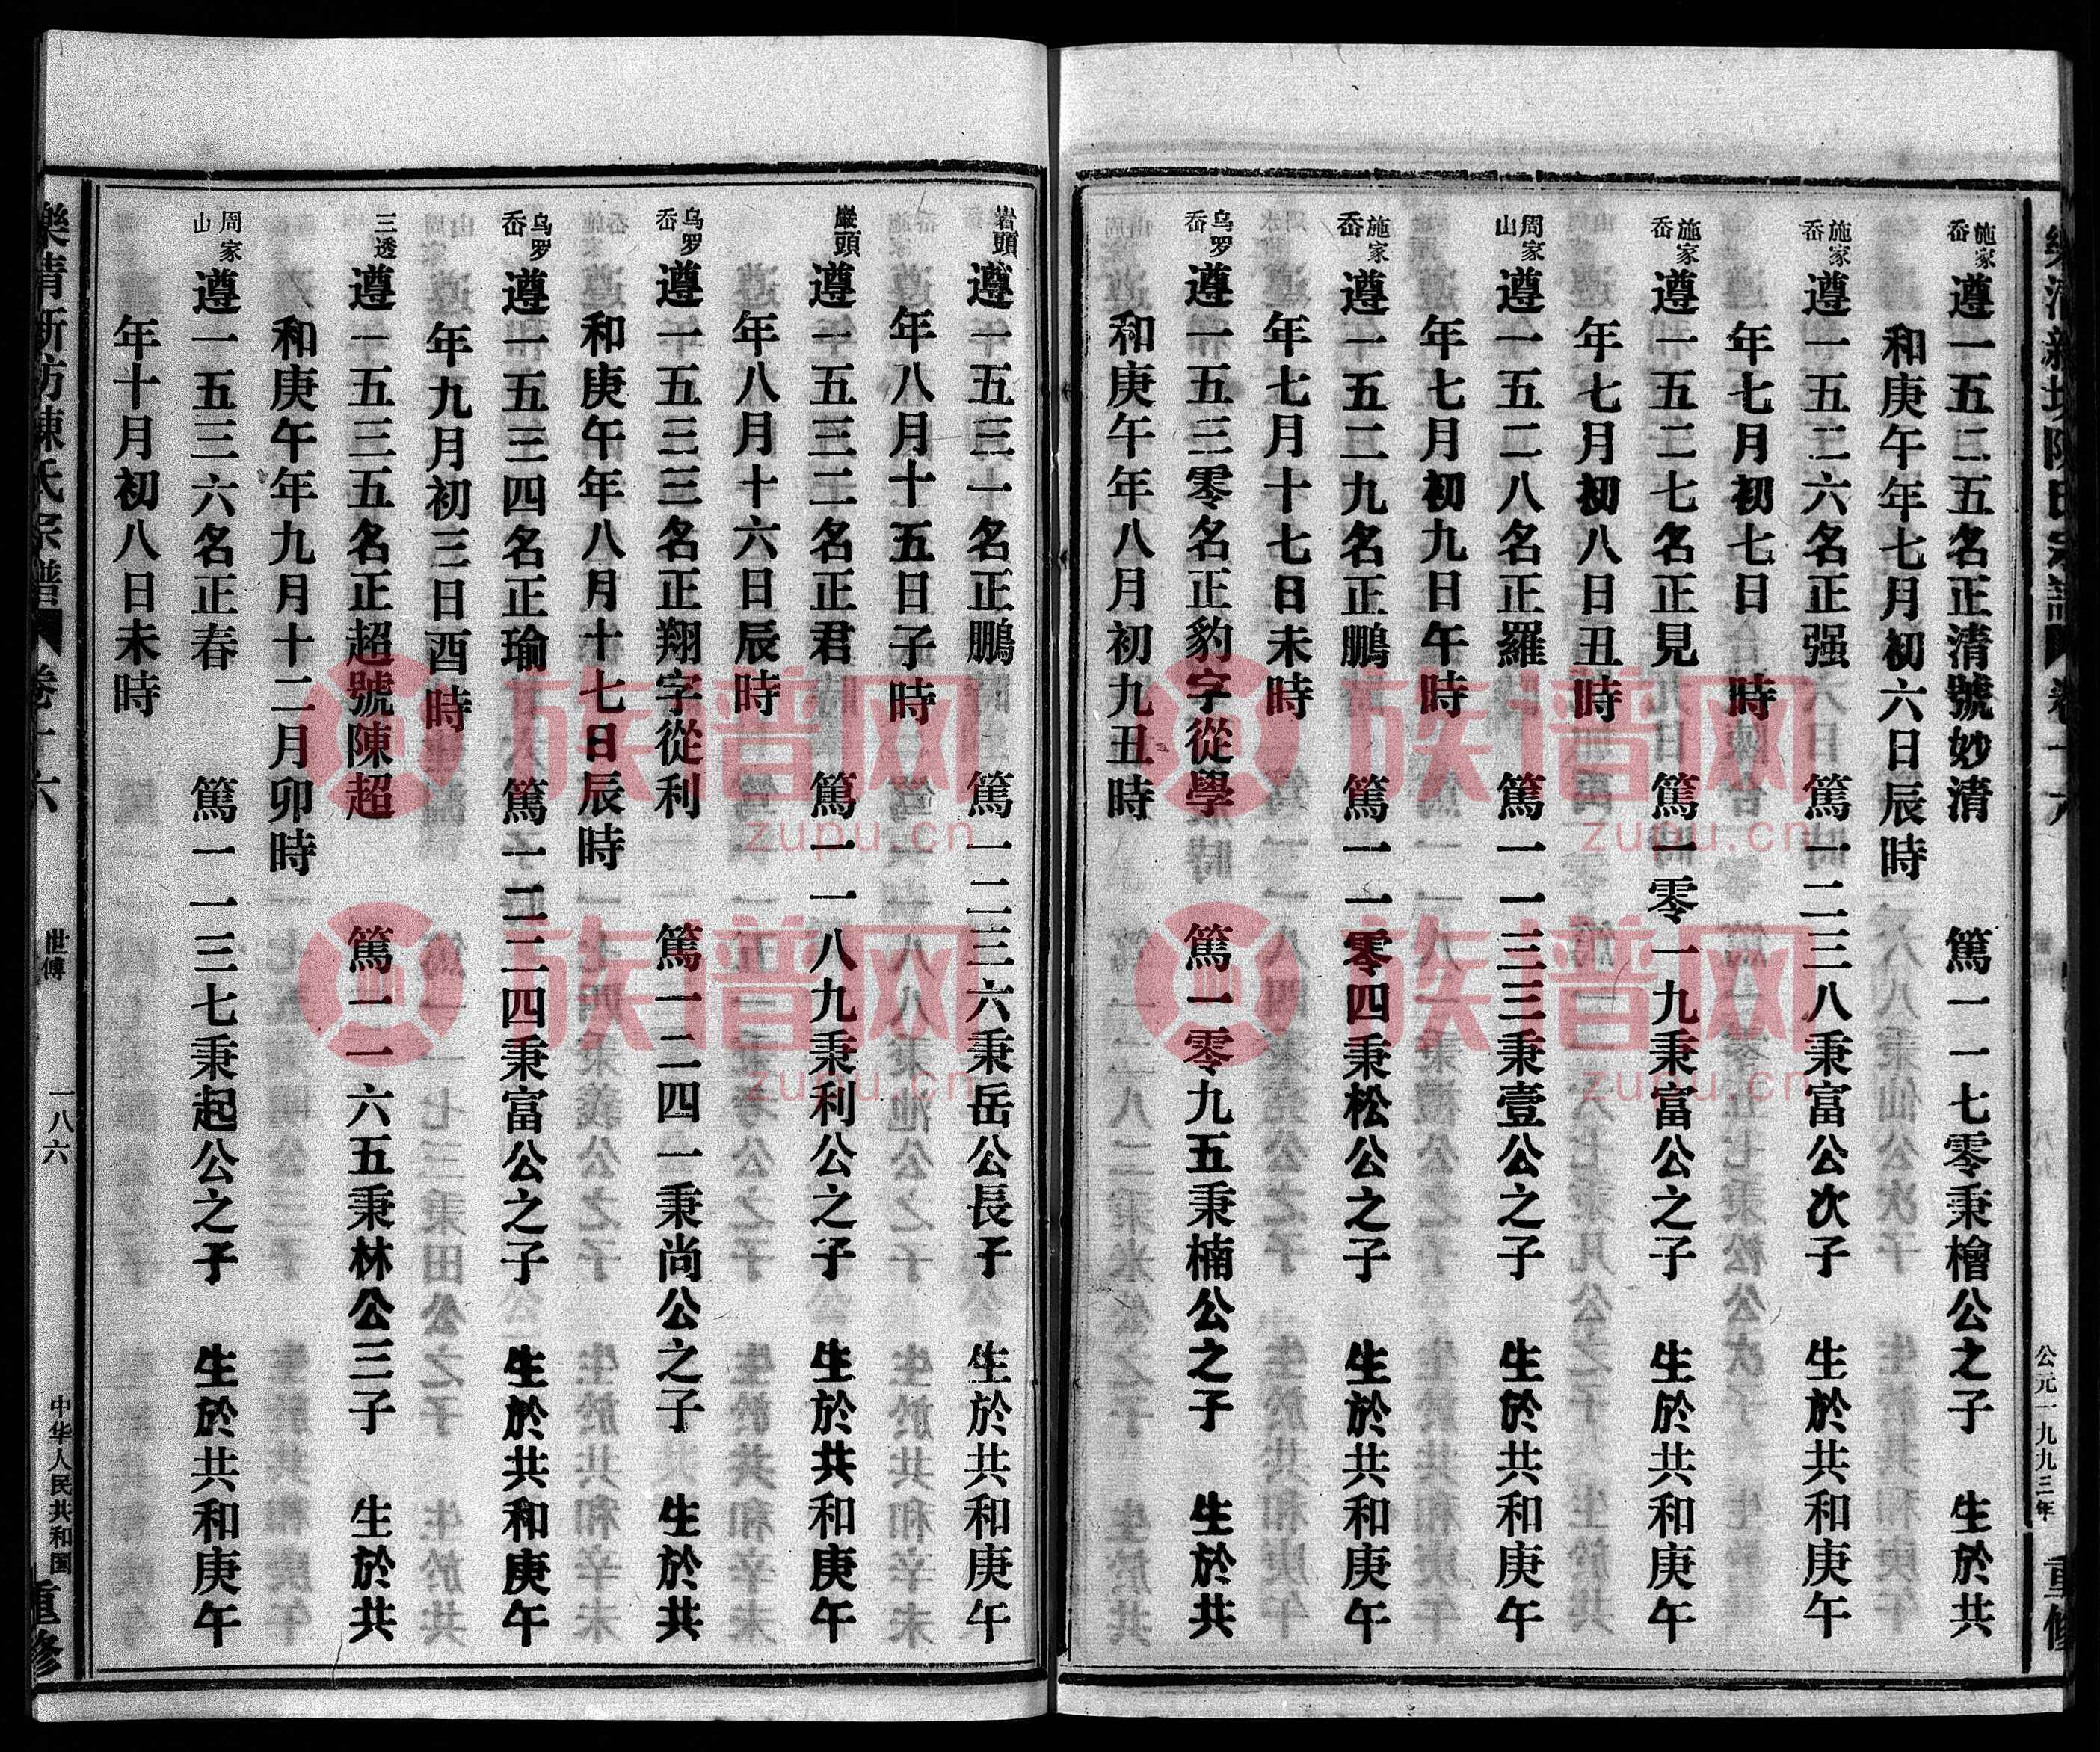 施家岙 遵一五二五名正清號妙清 篤一一七零秉檜公之子 生於共
和庚午年七月初六日辰時
施家岙 遵一五二六名正强 篤一二三八秉富公次子 生於共和庚午
年七月初七日 時
施家岙 遵一五二七名正見 篤一零一九秉富公之子 生於共和庚午
年七月初八日丑時
周家山 遵一五二八名正羅 篤一一三三秉壹公之子 生於共和庚午
年七月初九日午時
施家岙 遵一五二九名正鵬 篤一一零四秉松公之子 生於共和庚午
年七月十七日未時
乌罗岙 遵一五三零名正豹字從學 篤一零九五秉楠公之子 生於共
和庚午年八月初九丑時
公元一九九三年 重修
岩頭 遵一五三一名正鵬 篤一二三六秉岳公長子 生於共和庚午
年八月十五日子時
巖頭 遵一五三二名正君 篤一一八九秉利公之子 生於共和庚午
年八月十六日辰時
乌罗岙 遵一五三三名正翔字從利 篤一二四一秉尚公之子 生於共
和庚午年八月十七日辰時
乌罗岙 遵一五三四名正瑜 篤一二二四秉富公之子 生於共和庚午
年九月初三日酉時
三透 遵一五三五名正超號陳超 篤一一六五秉林公三子 生於共
和庚午年九月十二月卯時
周家山 遵一五三六名正春 篤一一三七秉起公之子 生於共和庚午
年十月初八日未時
樂清新坊陳氏宗譜 卷十六 世傳 一八六 中华人民共和国 重修
族谱网 zupu.cn
族谱网 zupu.cn
族谱网 zupu.cn
族谱网 zupu.cn